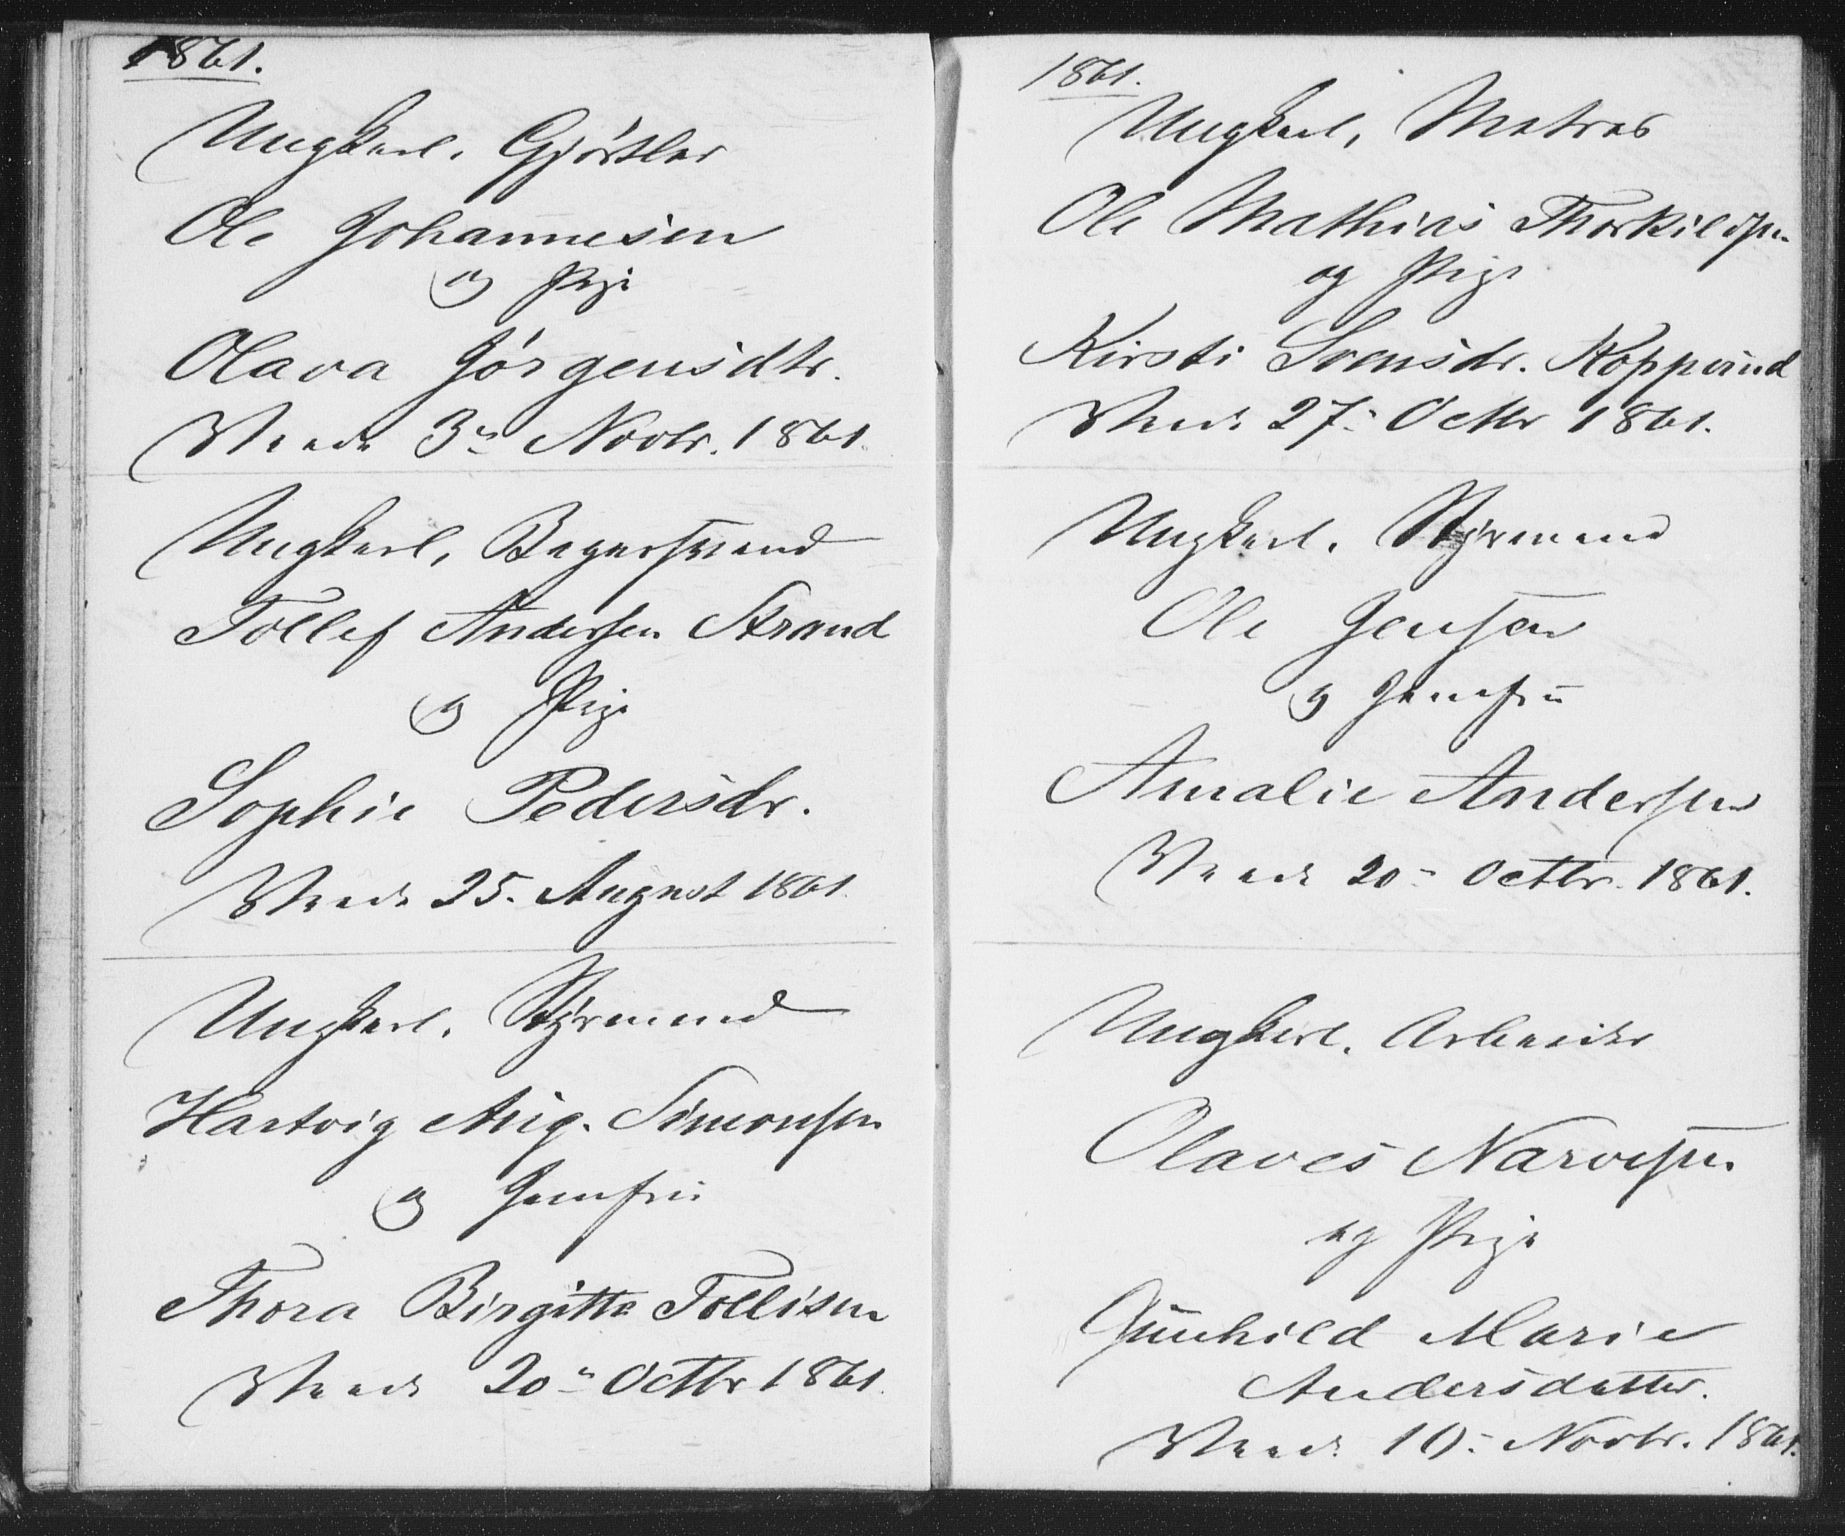 1861.
Ungkarl. Gjørtler
Ole Johannesen
og Pige
Olava Jørgensdtr.
3die Novbr. 1861.
Ungkarl, Bagersvend
Tollef Andersen Strand
og Pige
Sophie Pedersdr.
25. August 1861.
Ungkarl. Styrmand
Hartvig Aug. Simonsen
og Jomfru
Thora Birgitte Tollisen
20de Octbr 1861.
1861.
Ungkarl, Matros
Ole Mathias Thorkildsen
og Pige
Kirsti Svensdr. Kopperud
27de Octbr 1861.
Ungkarl. Styrmand
Ole Jensen
og Jomfru
Amalie Andersen
20de Octbr. 1861.
Ungkarl. Arbeider
Olaves Narvesen
og Pige
Gunhild Marie
Andersdatter.
10de Novbr. 1861.